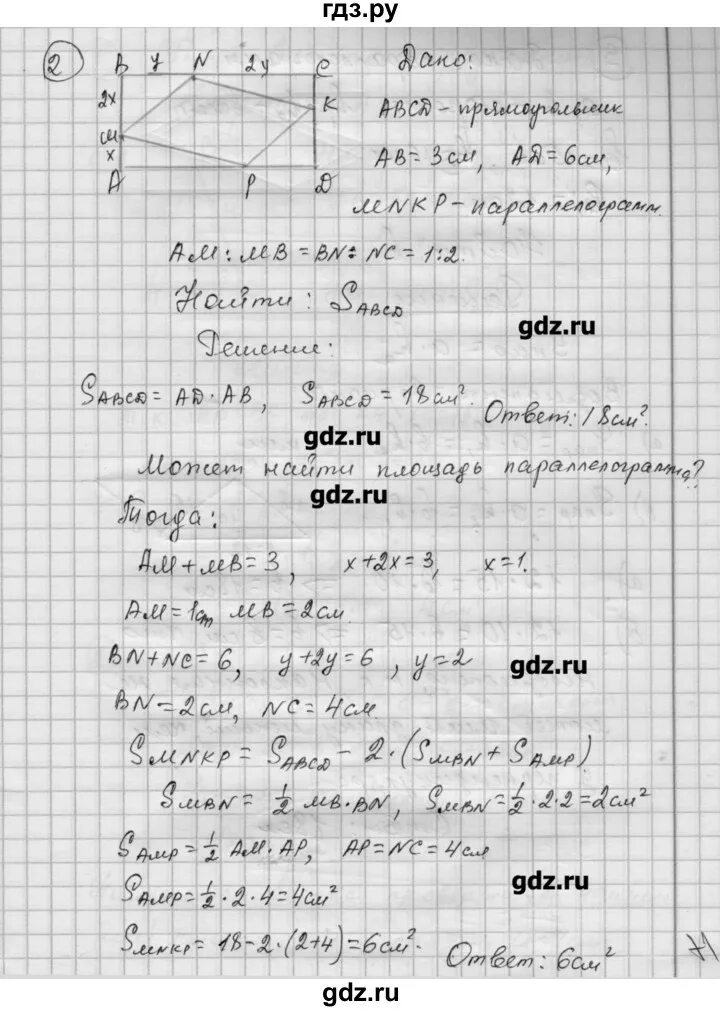 гдз.ру
2 B y N 2y C Дано:
2x K ABCD - прямоугольник
M
x AB = 3 см, AD = 6 см,
A P D
MNKP - параллелограмм.
AM : MB = BN : NC = 1:2.
Найти: S ABCD
gdz.ru
Решение:
S ABCD = AD · AB, S ABCD = 18 см². Ответ: 18 см².
gdz.ru
Может найти площадь параллелограмма?
gdz.ru
Тогда:
AM + MB = 3, x + 2x = 3, x = 1.
AM = 1 cm MB = 2 см
BN + NC = 6, y + 2y = 6, y = 2
gdz.ru
BN = 2 см, NC = 4 см.
S MNKP = S ABCD - 2 · (S MBN + S AMP)
S MBN = 1/2 MB · BN, S MBN = 1/2 · 2 · 2 = 2 см²
S AMP = 1/2 AM · AP, AP = NC = 4 см
gdz.ru
S AMP = 1/2 · 2 · 4 = 4 см²
S MNKP = 18 - 2 · (2+4) = 6 см². Ответ: 6 см²
gdz.ru
gdz.ru